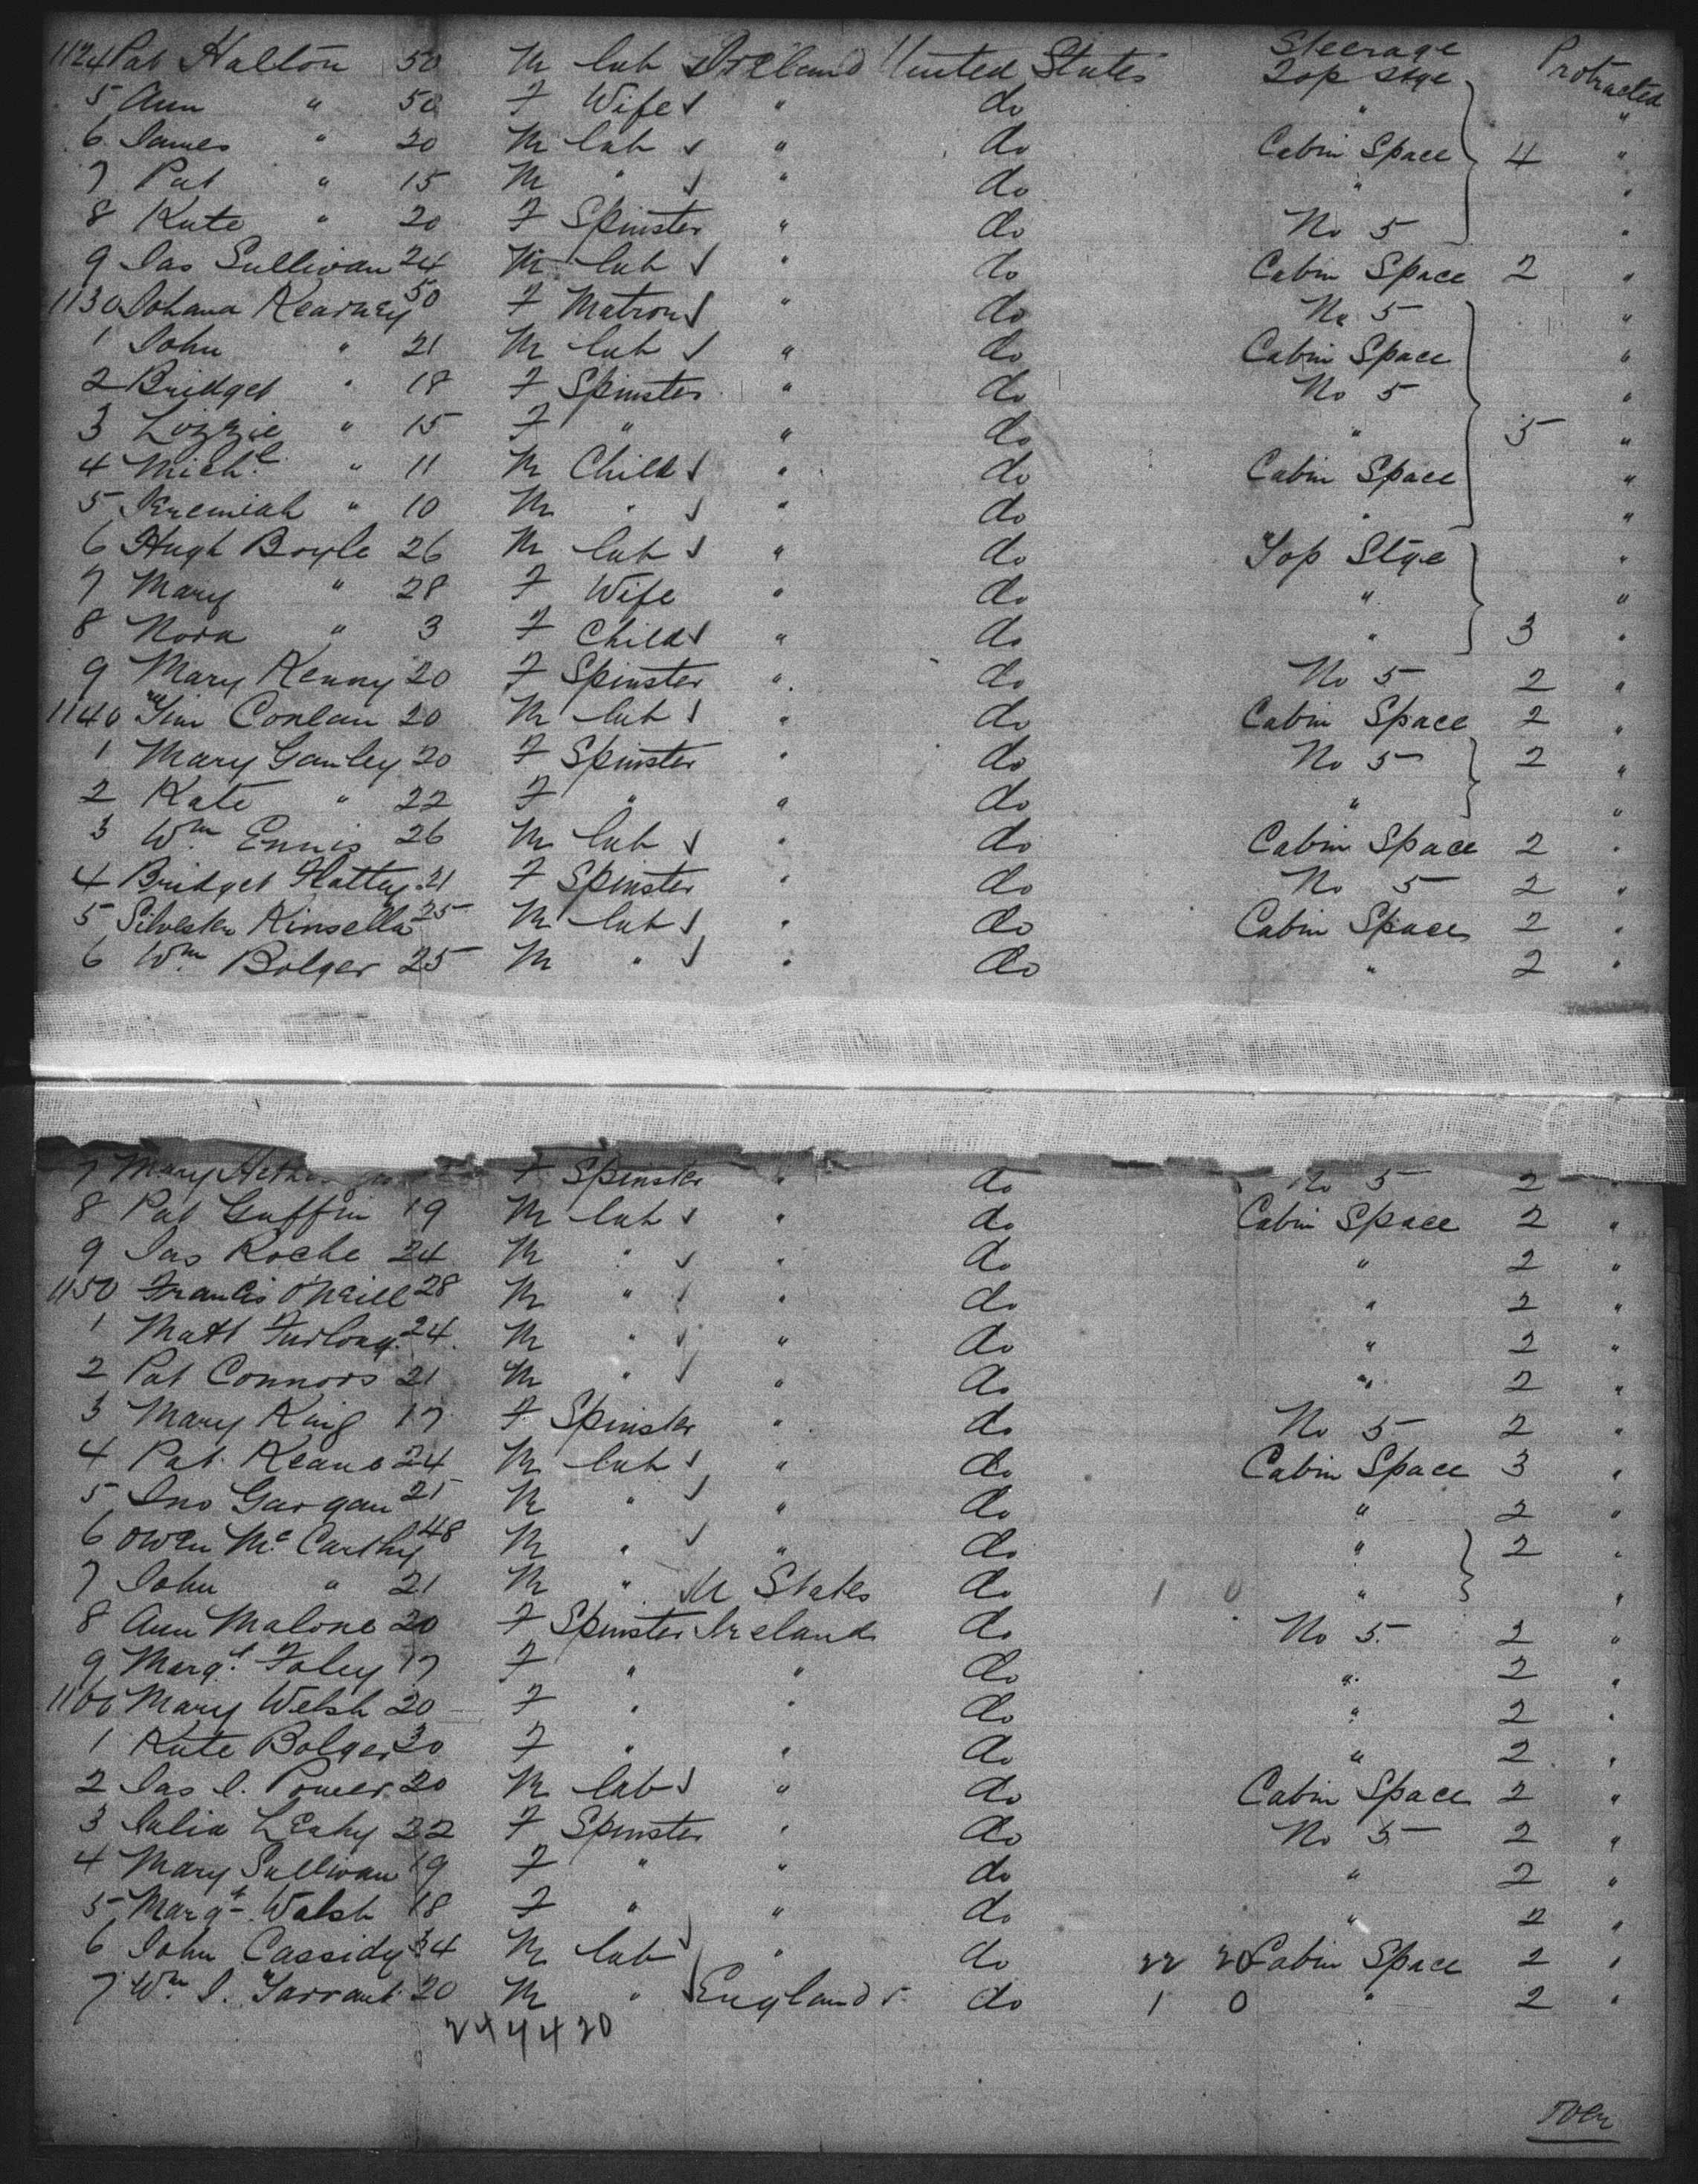 Steerage
1124 Pat Halton 50 M lab Ireland United States Top Stge Protracted
5 Ann " 50 F Wife " do " "
6 James " 20 M lab " do Cabin Space 4 "
7 Pat " 15 M " " do " "
8 Kate " 20 F Spinster " do No 5 "
9 Jas Sullivan 24 M lab " do Cabin Space 2 "
1130 Johana Kearney 50 F Matron " do No 5 "
1 John " 21 M lab " do Cabin Space "
2 Bridget " 18 F Spinster " do No 5 "
3 Lizzie " 15 F " " do " 5 "
4 Michl " 11 M Child " do Cabin Space "
5 Jeremiah " 10 M " " do " "
6 Hugh Boyle 26 M lab " do Top Stge "
7 Mary " 28 F Wife " do " "
8 Nora " 3 F Child " do " 3 "
9 Mary Kenny 20 F Spinster " do No 5 2 "
1140 Tim Conlan 20 M lab " do Cabin Space 2 "
1 Mary Ganley 20 F Spinster " do No 5 2 "
2 Kate " 22 F " " do " "
3 Wm Ennis 26 M lab " do Cabin Space 2 "
4 Bridget 21 F Spinster " do No 5 2 "
5 Silvester Kinsella 25 M lab " do Cabin Space 2 "
6 Wm Bolger 25 M " " do " 2 "
7 Mary F Spinster " do No 5 2 "
8 Pat Guffin 19 M lab " do Cabin Space 2 "
9 Jas Roche 24 M " " do " 2 "
1150 Francis O'Neill 28 M " " do " 2 "
1 Matt Furlong 24 M " " do " 2 "
2 Pat Connors 21 M " " do " 2 "
3 Mary King 17 F Spinster " do No 5 2 "
4 Pat Keane 24 M lab " do Cabin Space 3 "
5 Jno Gargan 21 M " " do " 2 "
6 Owen McCarthy 48 M " " do " 2 "
7 John " 21 M " U States do 1 0 " "
8 Ann Malone 20 F Spinster Ireland do No 5 2 "
9 Margt Foley 17 F " " do " 2 "
1160 Mary Welsh 20 F " " do " 2 "
1 Kate Bolger 30 F " " do " 2 "
2 Jas J. Power 20 M lab " do Cabin Space 2 "
3 Julia Leahy 22 F Spinster " do No 5 2 "
4 Mary Sullivan 19 F " " do " 2 "
5 Margt Walsh 18 F " " do " 2 "
6 John Cassidy 34 M lab " do 22 20 Cabin Space 2 "
7 Wm J. Tarrant 20 M " England do 1 0 " 2 "
244420
over